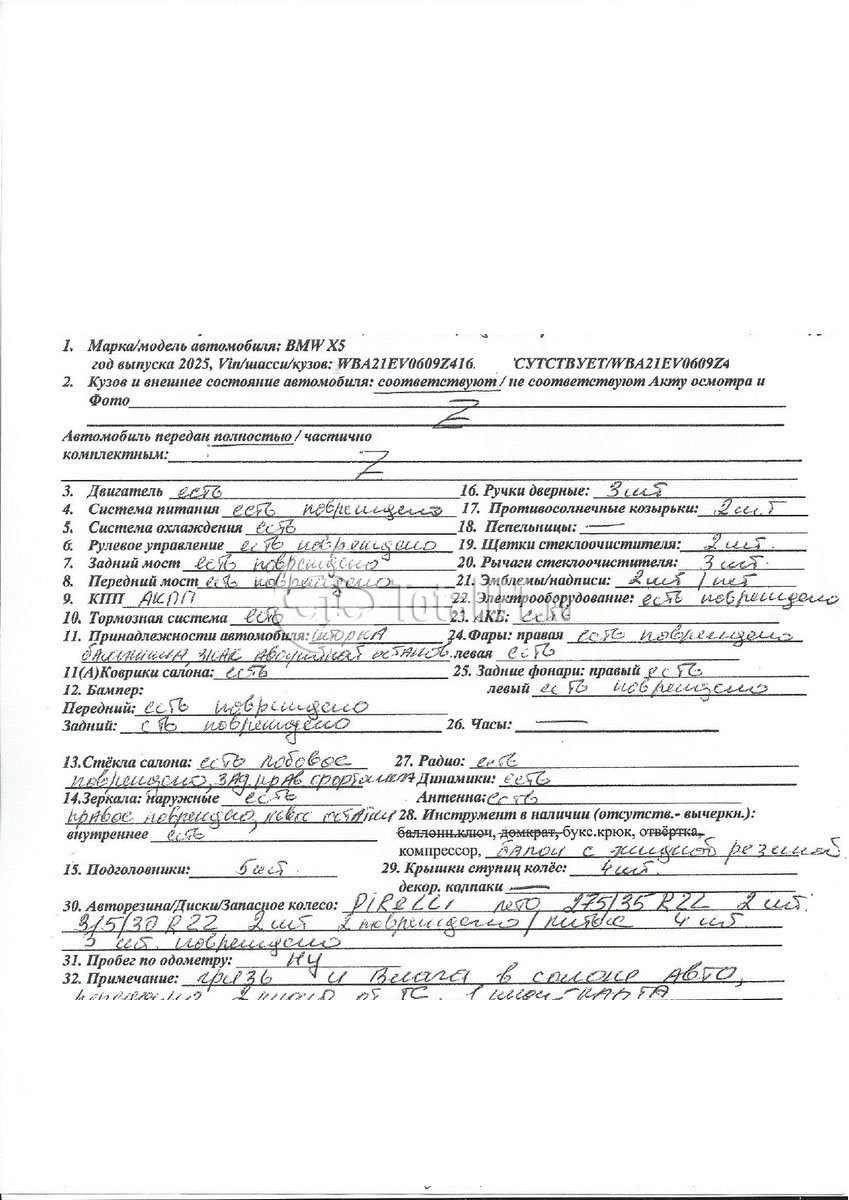 1. Марка/модель автомобиля: BMW X5
год выпуска 2025, Vin/шасси/кузов: WBA21EV0609Z416. СУТСТВУЕТ/WBA21EV0609Z4
2. Кузов и внешнее состояние автомобиля: соответствуют / не соответствуют Акту осмотра и
Фото
Z
Автомобиль передан полностью / частично
комплектным:
Z
3. Двигатель есть
16. Ручки дверные: 3 шт
4. Система питания есть повреждено
17. Противосолнечные козырьки: 2 шт
5. Система охлаждения есть
18. Пепельницы: —
6. Рулевое управление есть повреждено
19. Щетки стеклоочистителя: 2 шт
7. Задний мост есть повреждено
20. Рычаги стеклоочистителя: 3 шт
8. Передний мост есть повреждено
21. Эмблемы/надписи: 2 шт 1 шт
9. КПП АКПП
22. Электрооборудование: есть повреждено
10. Тормозная система есть
23. АКБ: есть
11. Принадлежности автомобиля: шторка
24. Фары: правая есть повреждено
знак аварийной останов.
левая есть
11(А)Коврики салона: есть
25. Задние фонари: правый есть
12. Бампер:
левый есть повреждено
Передний: есть повреждено
Задний: есть повреждено
26. Часы: —
13.Стёкла салона: есть лобовое
27. Радио: есть
повреждено, зад прав форточка
Динамики: есть
14.Зеркала: наружные есть
Антенна: есть
правое повреждено,
28. Инструмент в наличии (отсутств.- вычеркн.):
внутреннее есть
баллонн.ключ, домкрат, букс.крюк, отвёртка,
компрессор, балон с жидкой резиной
15. Подголовники: 5 шт.
29. Крышки ступиц колёс: 4 шт.
декор. колпаки —
30. Авторезина/Диски/Запасное колесо: PIRELLI лето 275/35 R22 2 шт.
315/30 R22 2 шт 2 повреждено / литые 4 шт.
3 шт. повреждено
31. Пробег по одометру: НУ
32. Примечание: грязь и влага в салоне авто,
от ТС, 1 ключ-карта